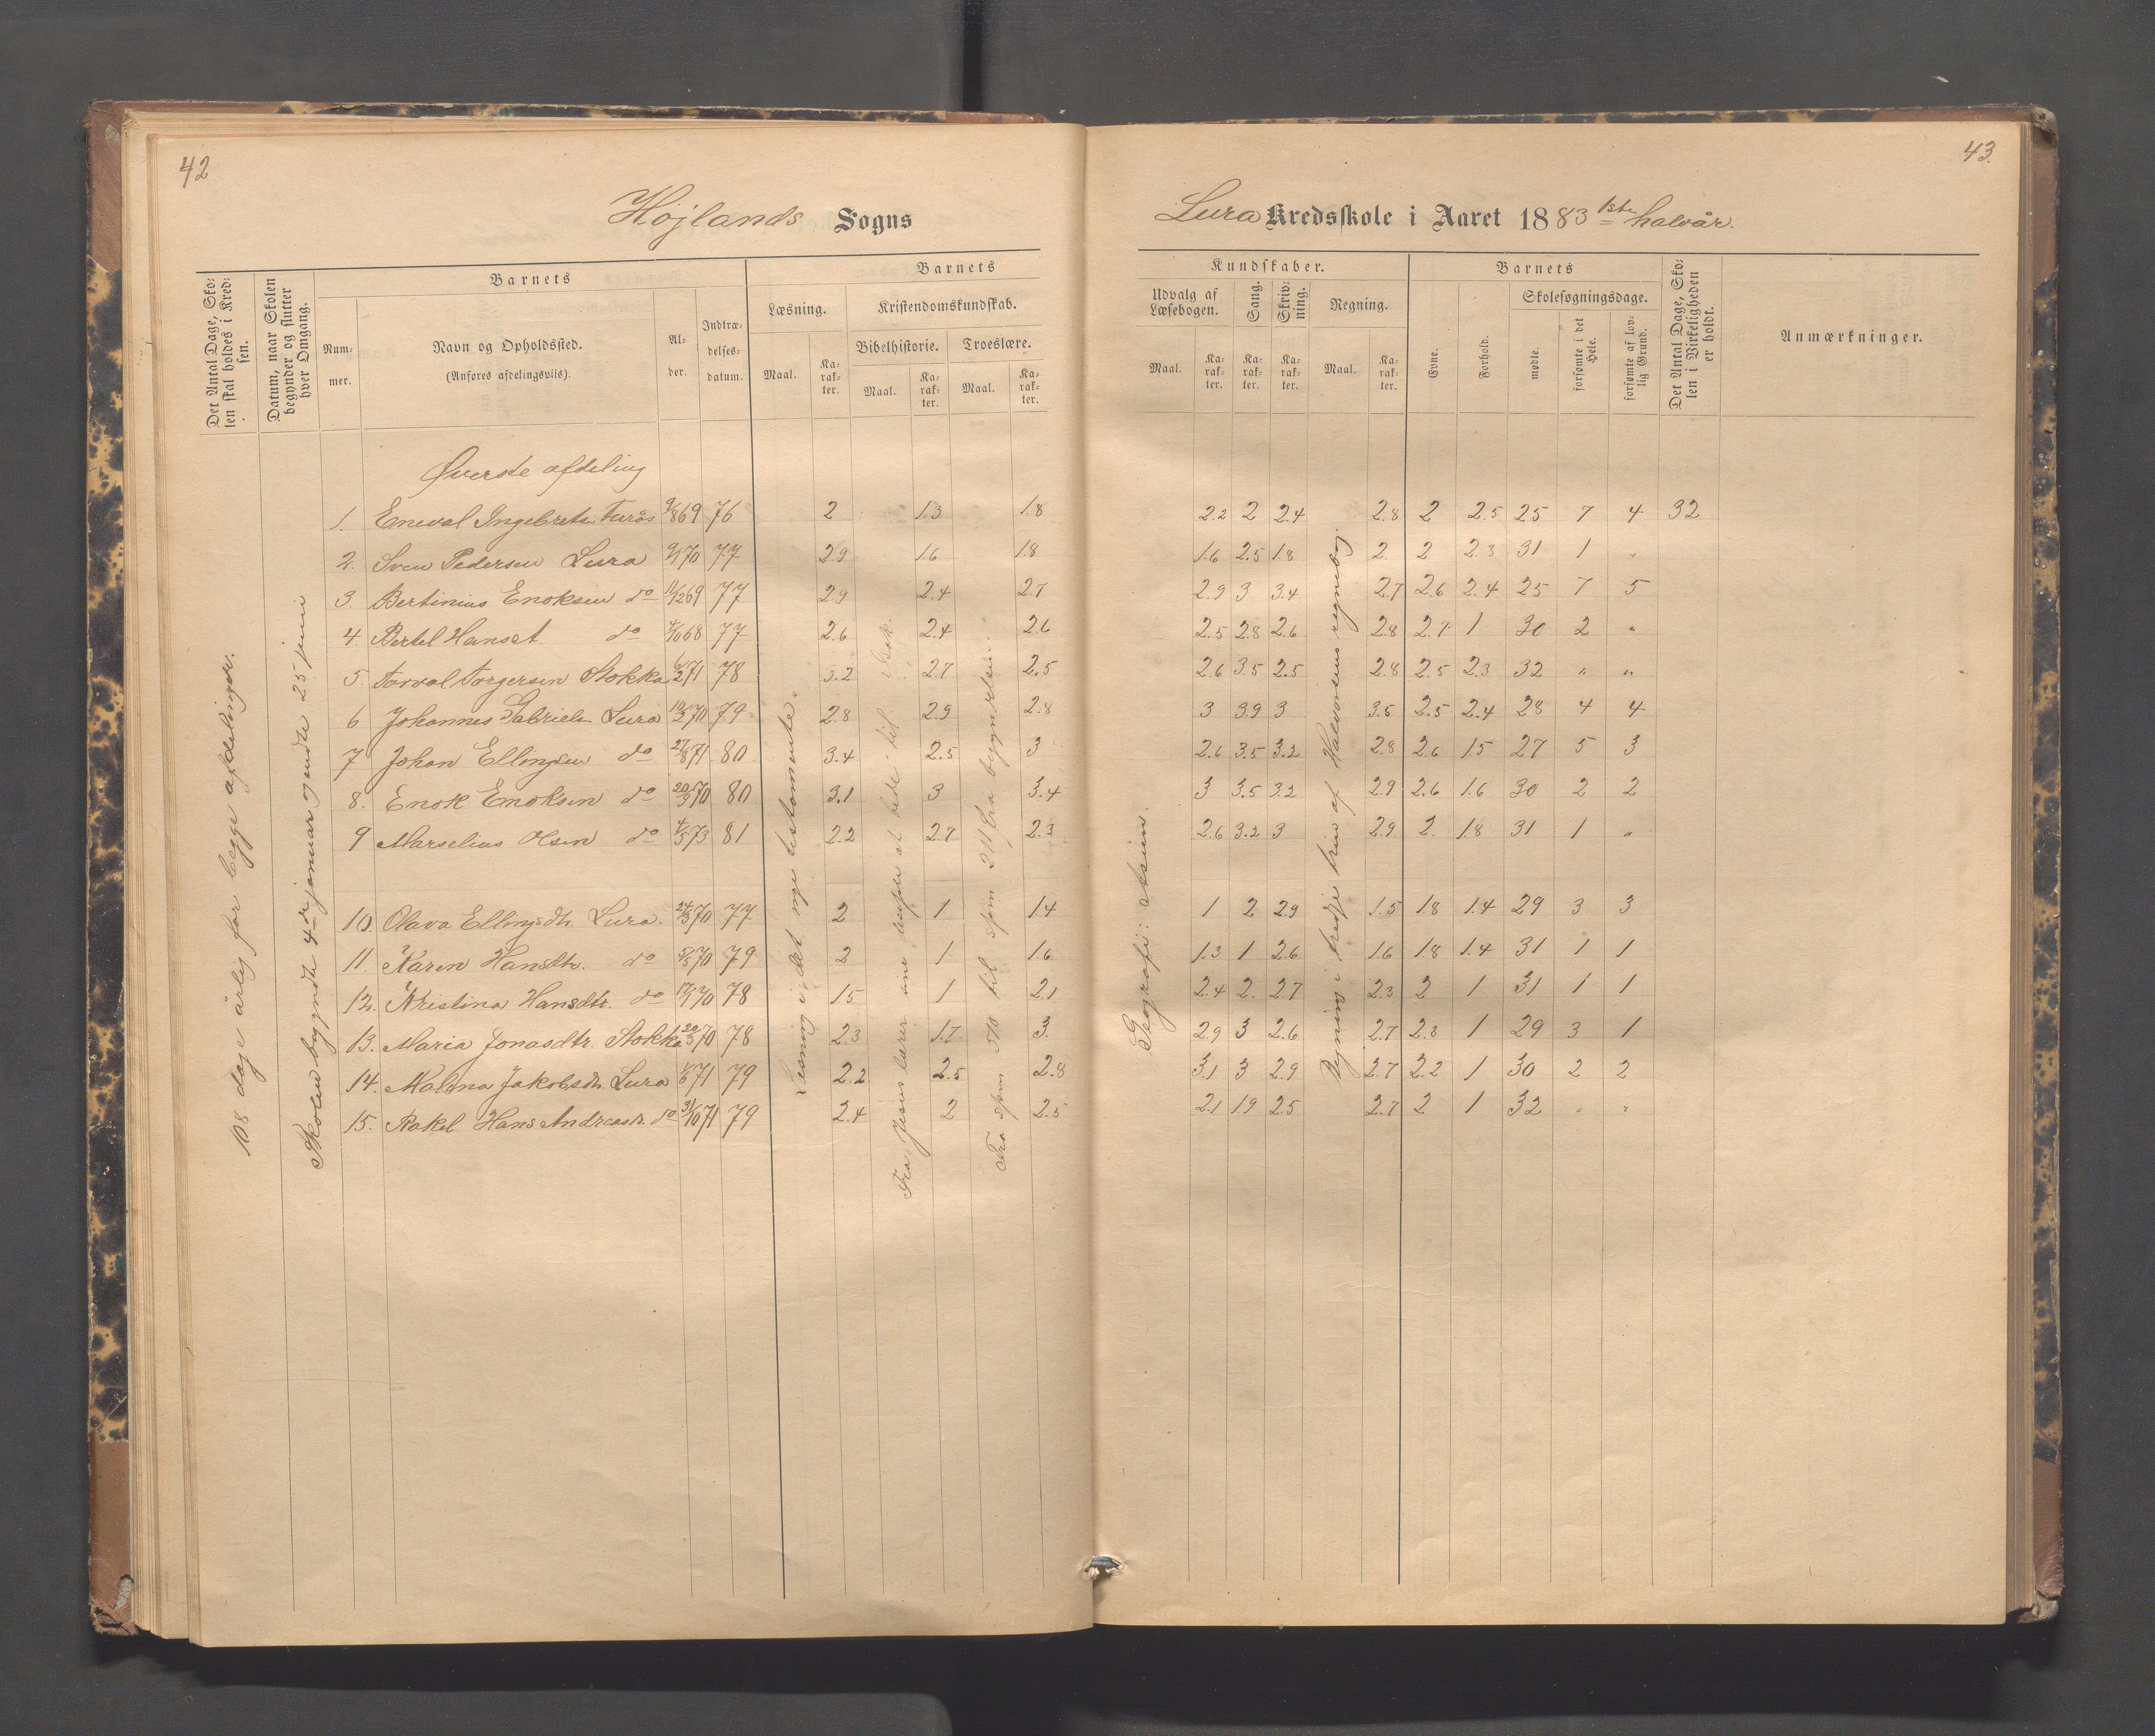 42
Højlands Sogns
Det Antal Dage, Skolen skal holdes i Kredsen.
Datum, naar Skolen begynder og slutter hver Omgang.
Barnets
Nummer.
Navn og Opholdssted.
(Anføres afdelingsviis).
Alder.
Indtrædelsesdatum.
Barnets
Læsning.
Kristendomskundskab.
Bibelhistorie. Troeslære.
Maal. Karakter. Maal. Karakter. Maal. Karakter.
108 dage årlig for begge afdelinger.
Skolen begyndte 4de januar og endte 25 juni
Øverste afdeling
1. Eneval Ingebrets. Furås 9/8 69 76 2 1.3 1.8
2. Sven Pedersen Lura 9/1 70 77 2.9 1.6 1.8
3. Bertinius Enoksen do 11/12 69 77 2.9 2.4 2.7
4. Bertel Hanset. do 4/10 68 77 2.6 2.4 2.6
5. Torval Torgersen Stokka 6/2 71 78 3.2 2.7 2.5
6 Johannes Gabriels. Lura 10/2 70 79 2.8 2.9 2.8
7 Johan Ellingsen do 27/8 71 80 3.4 2.5 3
8. Enok Enoksen do 20/9 70 80 3.1 3 3.4
9 Marselius Olsen do 4/5 73 81 2.2 2.7 2.3
10. Olava Ellingsdtr. Lura. 24/3 70 77 2 1 1.4
11. Karen Hansdtr. do 5/5 70 79 2 1 1.6
12. Kristina Hansdtr. do 17/1 70 78 1.5 1 2.1
13. Maria Jonasdtr. Stokka 20/3 70 78 2.3 1.7 3.
14. Malena Jakobsdtr. Lura 1/6 71 79 2.2 2.5 2.8
15. Rakel Hans Andreasdr. do 31/10 71 79 2.4 2 2.5
Læsning i det nye testamente.
Fra Jesus lærer sine disciple at bede til
Fra spm 570 til spm 211 fra begyndelsen.
43.
Lura Kredsskole i Aaret 1883 1ste halvår.
Kundskaber.
Udvalg af Læsebogen.
Sang.
Skrivning.
Regning.
Maal. Karakter. Karakter. Karakter. Maal. Karakter.
Barnets
Evne.
Forhold.
Skolesøgningsdage.
mødte.
forsømte i det Hele.
forsømte af lovlig Grund.
Det Antal Dage, Skolen i Virkeligheden er holdt.
Anmærkninger.
2.2 2 2.4 2.8 2 2.5 25 7 4 32
1.6 2.5 1.8 2. 2 2.3 31 1 "
2.9 3 3.4 2.7 2.6 2.4 25 7 5
2.5 2.8 2.6 2.8 2.7 1 30 2 "
2.6 3.5 2.5 2.8 2.5 2.3 32 " "
3 3.9 3 3.5 2.5 2.4 28 4 4
2.6 3.5 3.2 2.8 2.6 1.5 27 5 3
3 3.5 3.2 2.9 2.6 1.6 30 2 2
2.6 3.2 3 2.9 2. 1.8 31 1 "
1 2 2.9 1.5 1.8 1.4 29 3 3
1.3 1 2.6 1.6 1.8 1.4 31 1 1
2.4 2. 2.7 2.3 2 1 31 1 1
2.9 3 2.6 2.7 2.3 1 29 3 1
3.1 3 2.9 2.7 2.2 1 30 2 2
2.1 1.9 2.5 2.7 2 1 32 " "
Geografi: Asien.
Regning i tredje trin af Halvorsens regnebog.